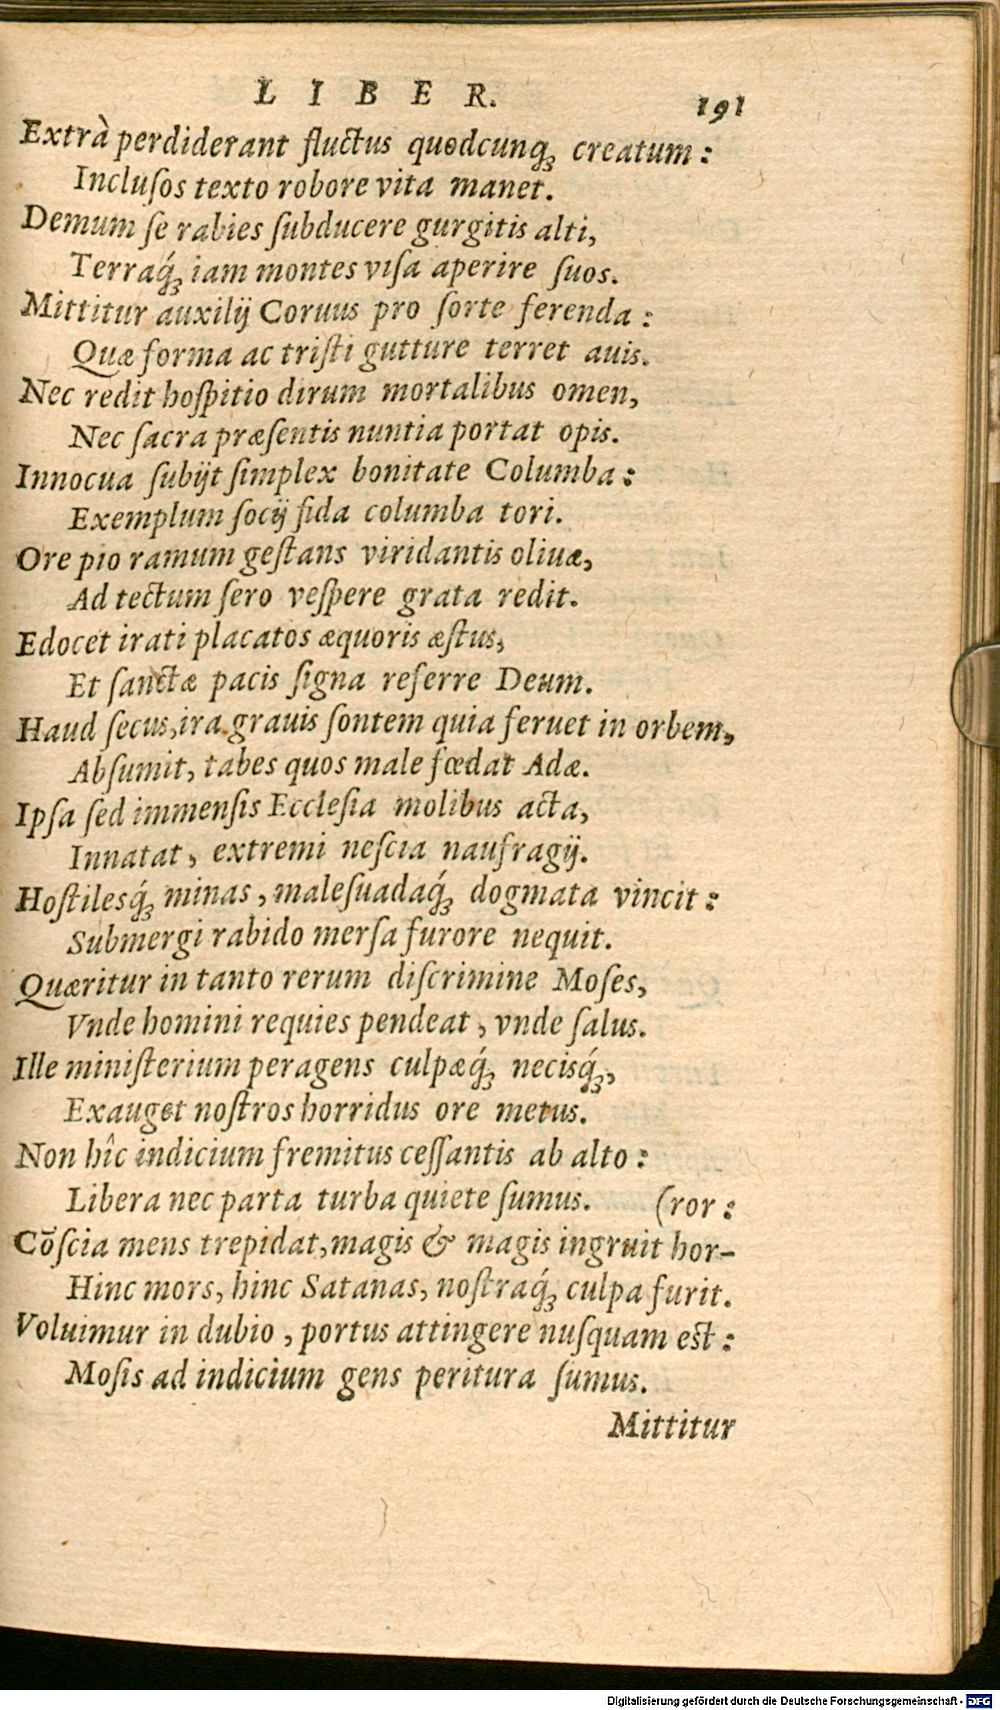 LIBER. 191
Extrà perdiderant fluctus quodcunq́ꝫ creatum:
Incluſos texto robore vita manet.
Demum ſe rabies ſubducere gurgitis alti,
Terraq́ꝫ iam montes viſa aperire ſuos.
Mittitur auxilij Coruus pro ſorte ferenda:
Quæ forma ac triſti gutture terret auis.
Nec redit hoſpitio dirum mortalibus omen,
Nec ſacra præſentis nuntia portat opis.
Innocua ſubijt ſimplex bonitate Columba:
Exemplum ſocij fida columba tori.
Ore pio ramum geſtans viridantis oliuæ,
Ad tectum ſero veſpere grata redit.
Edocet irati placatos æquoris æſtus,
Et ſanctæ pacis ſigna referre Deum.
Haud ſecus, ira grauis ſontem quia feruet in orbem,
Abſumit, tabes quos male fœdat Adæ.
Ipſa ſed immenſis Eccleſia molibus acta,
Innatat, extremi neſcia naufragij.
Hoſtilesq́ꝫ minas, maleſuadaq́ꝫ dogmata vincit:
Submergi rabido merſa furore nequit.
Quæritur in tanto rerum diſcrimine Moſes,
Vnde homini requies pendeat, vnde ſalus.
Ille miniſterium peragens culpæq́ꝫ necisq́ꝫ,
Exauget noſtros horridus ore metus.
Non hîc indicium fremitus ceſſantis ab alto:
Libera nec parta turba quiete ſumus. (ror:
Cõſcia mens trepidat, magis & magis ingruit hor-
Hinc mors, hinc Satanas, noſtraq́ꝫ culpa furit.
Voluimur in dubio, portus attingere nuſquam eſt:
Moſis ad indicium gens peritura ſumus.
Mittitur
Digitalisierung gefördert durch die Deutsche Forschungsgemeinschaft - DFG